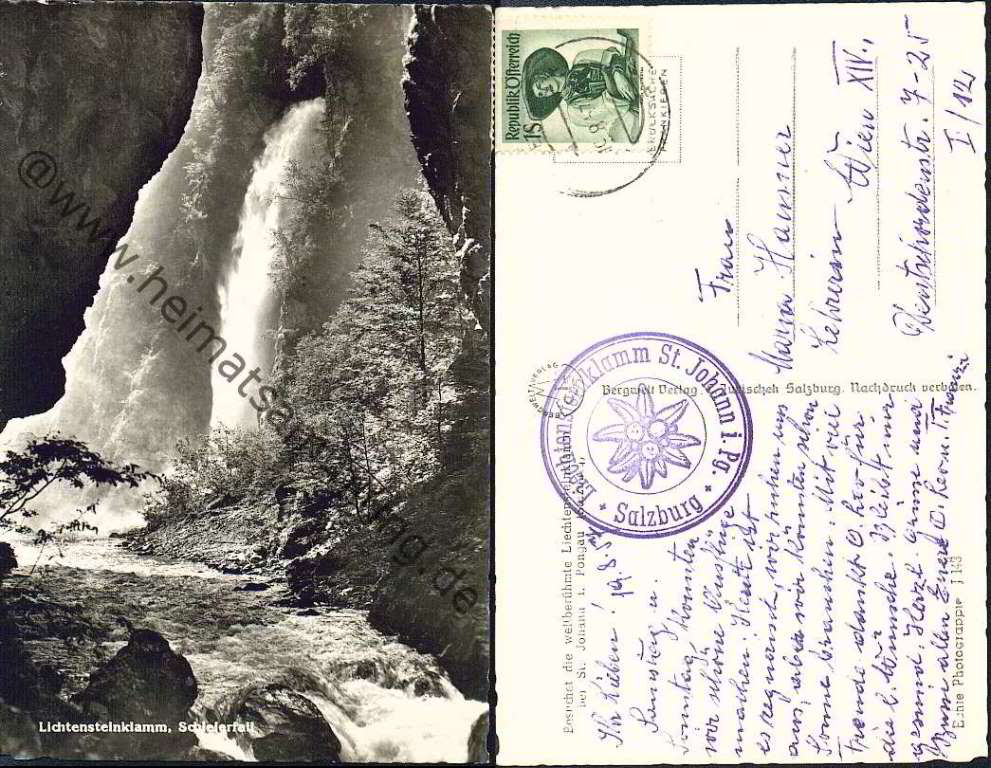 @www.heimatsammlung.de
Lichtensteinklamm, Schleierfall
Republik Österreich
1S
DRUCKSACHE
FRANKIEREN
Frau
Hammer
Lehrerin
Wien XIV.,
7-25
I/12
Bergwelt Verlag
Salzburg. Nachdruck verboten.
Liechtensteinklamm St. Johann i. Pg.
* Salzburg *
Besuchet die weltberühmte Liechtensteinklamm
bei St. Johann i. Pongau
Ihr Lieben! 19.8.
Samstag u.
Sonntag konnten
wir schöne Ausflüge
machen. Heute ist
es regnerisch, wir ruhen uns
aus, aber wir könnten schon
Sonne brauchen. Mit viel
Freude dankt O. her für
die l. Wünsche. Bleibt nur
gesund. Herzl. Grüsse und
Bussi allen Eure
Echte Photographie J 143